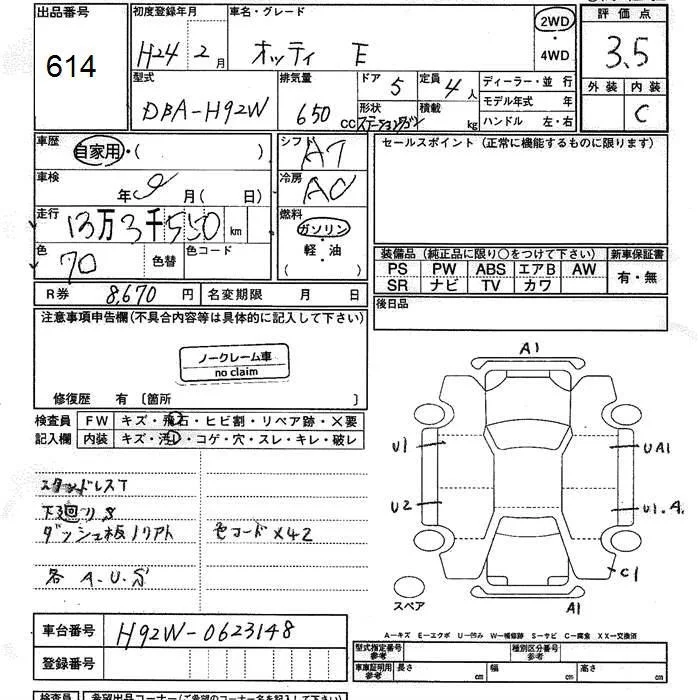 出品番号
614
初度登録年月
H24 2月
車名・グレード
オッティ E
2WD
・
4WD
評価点
3.5
外装 内装
C
型式
DBA-H92W
排気量
650 CC
ドア 5
定員 4人
形状 ステーションワゴン
積載 kg
ディーラー・並行
モデル年式 年
ハンドル 左・右
車歴
自家用・( )
シフト
AT
セールスポイント (正常に機能するものに限ります)
車検
年 9月( 日)
冷房
AC
走行
13万3千550 km
燃料
ガソリン
・
軽・油
( )
色
70 色替
色コード
装備品 (純正品に限り○をつけて下さい)
新車保証書
PS PW ABS エアB AW
SR ナビ TV カワ
有・無
R券 8,670円
名変期限 月 日
後日品
注意事項申告欄(不具合内容等は具体的に記入して下さい)
ノークレーム車
no claim
修復歴 有 〔箇所 〕
検査員
記入欄
FW キズ・飛石・ヒビ割・リペア跡・X要
内装 キズ・汚れ・コゲ・穴・スレ・キレ・破レ
スタッドレスT
下廻りS
ダッシュ板ノリアト
色コード×42
各 A.U.分
A1
U1
UA1
U2
U1.A.
C1
A1
スペア
車台番号
H92W-0623148
登録番号
A―キズ E―エクボ U―凹み W―補修跡 S―サビ C―腐食 XX―交換済
型式指定番号
参考
種別区分番号
参考
車庫証明用
参考
長さ cm
幅 cm
高さ cm
検査員
希望出品コーナー(ご希望のコーナー名を記入下さい)